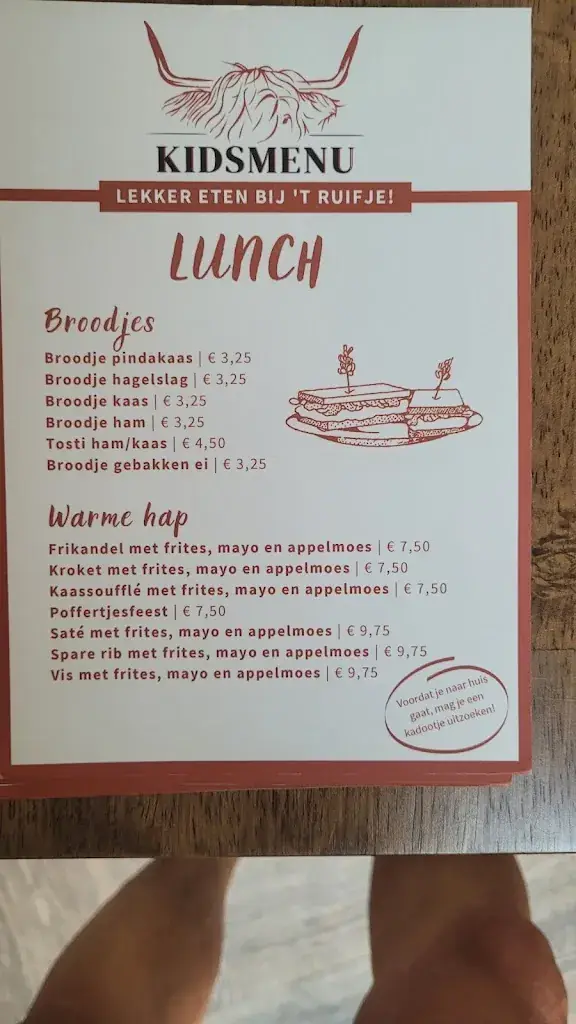 KIDSMENU
LEKKER ETEN BIJ 'T RUIFJE!
LUNCH
Broodjes
Broodje pindakaas | € 3,25
Broodje hagelslag | € 3,25
Broodje kaas | € 3,25
Broodje ham | € 3,25
Tosti ham/kaas | € 4,50
Broodje gebakken ei | € 3,25
Warme hap
Frikandel met frites, mayo en appelmoes | € 7,50
Kroket met frites, mayo en appelmoes | € 7,50
Kaassoufflé met frites, mayo en appelmoes | € 7,50
Poffertjesfeest | € 7,50
Saté met frites, mayo en appelmoes | € 9,75
Spare rib met frites, mayo en appelmoes | € 9,75
Vis met frites, mayo en appelmoes | € 9,75
Voordat je naar huis
gaat, mag je een
kadootje uitzoeken!